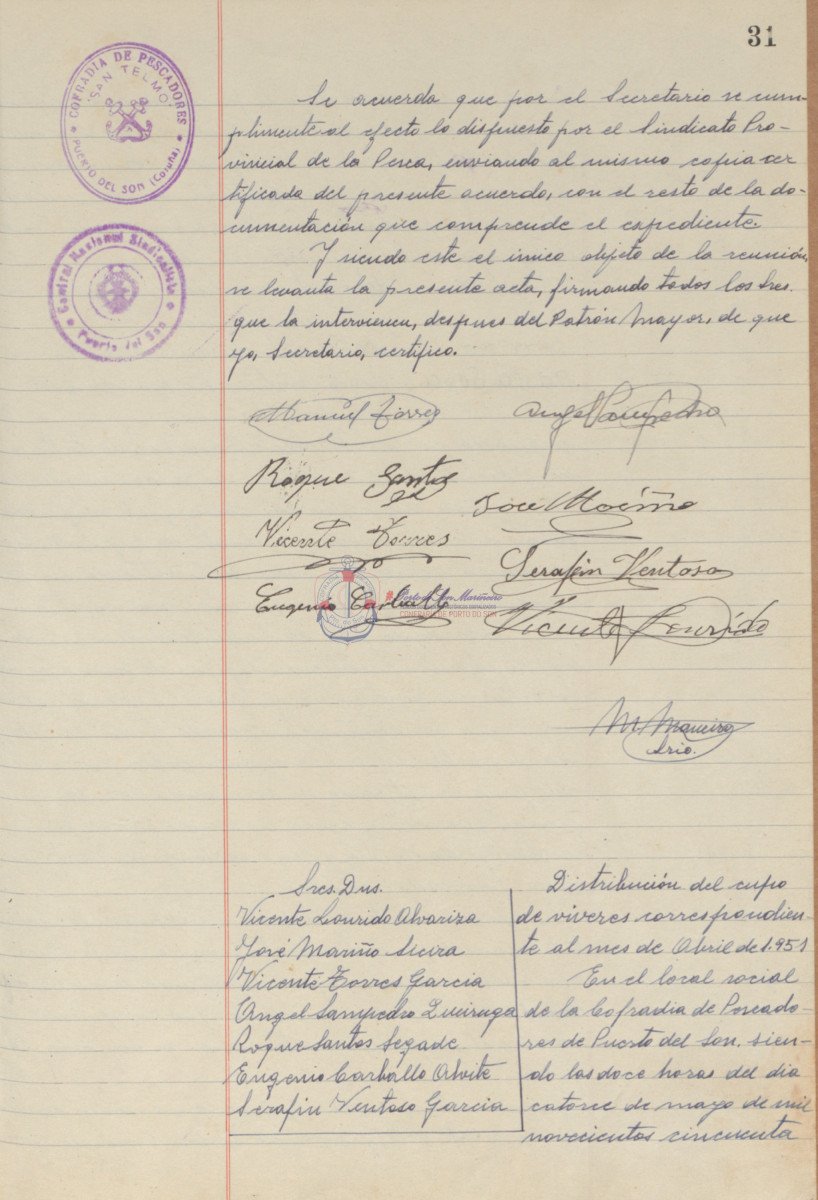 31
COFRADIA DE PESCADORES
"SAN TELMO"
PUERTO DEL SON (Coruña)
Se acuerda que por el Secretario se cum-
plimente al efecto lo dispuesto por el Sindicato Pro-
vincial de la Pesca, enviando al mismo copia cer
tificada del presente acuerdo, con el resto de la do-
cumentación que comprende el expediente.
Central Nacional Sindicalista
Puerto del Son
Y siendo este el único objeto de la reunión,
se levanta la presente acta, firmando todos los Sres.
que la intervienen, despues del Patrón Mayor, de que
yo, Secretario, certifico.
Manuel Torres
Angel Sampedro
Roque Santos
Jose Mariño
Vicente Torres
Serafin Ventoso
Eugenio Carballo
Porto do Son Mariñeiro
CONFRARÍA DE PORTO DO SON
Vicente Lourido
M. Maneiro
Srio.
Sres. Dns.
Vicente Lourido Alvariza
José Mariño Sieira
Vicente Torres Garcia
Angel Sampedro Queiruga
Roque Santos Segade
Eugenio Carballo Alvite
Serafin Ventoso Garcia
Distribución del cupo
de víveres correspondien-
te al mes de Abril de 1.951
En el local social
de la Cofradia de Pescado-
res de Puerto del Son, sien-
do las doce horas del dia
catorce de mayo de mil
novecientos cincuenta